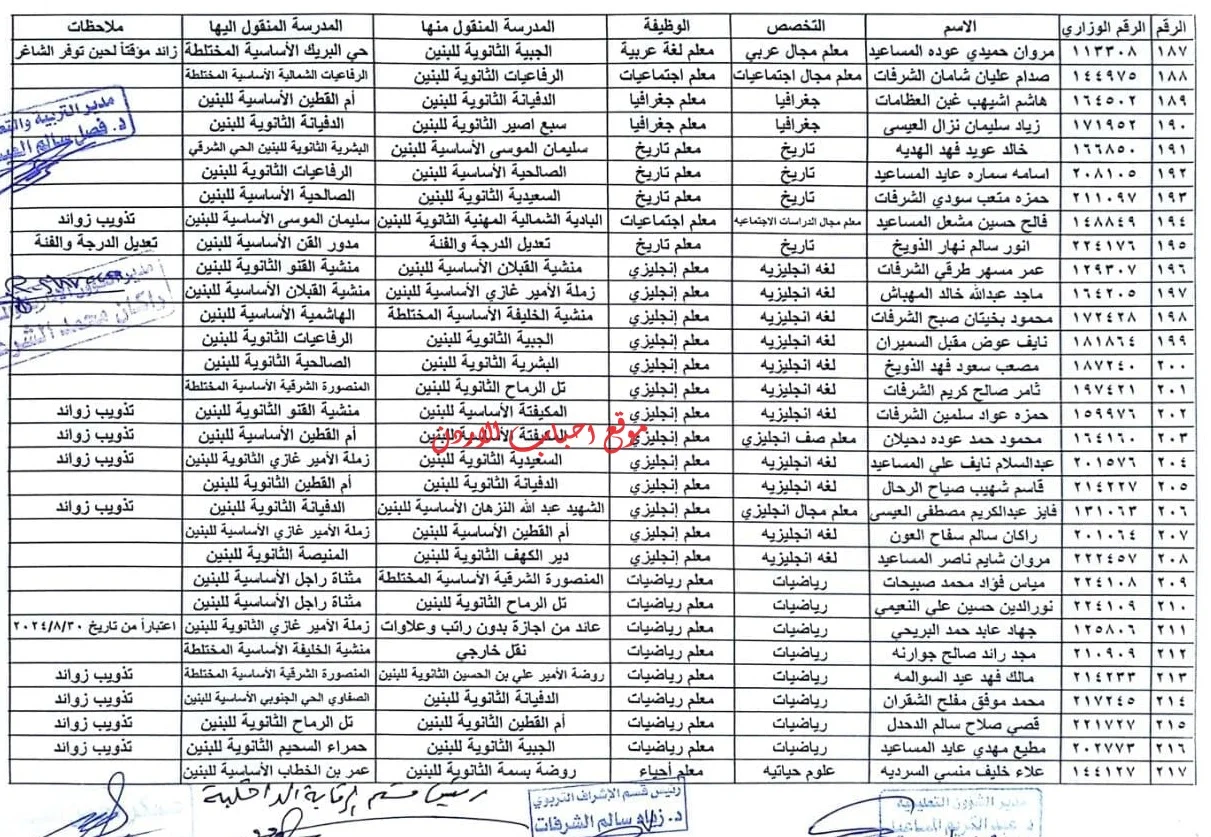 الرقم الرقم الوزاري الاسم التخصص الوظيفة المدرسة المنقول منها المدرسة المنقول اليها ملاحظات
١٨٧ ١١٣٣٠٨ مروان حميدي عوده المساعيد معلم مجال عربي معلم لغة عربية الجبية الثانوية للبنين حي البريك الأساسية المختلطة زائد مؤقتاً لحين توفر الشاغر
١٨٨ ١٤٤٩٧٥ صدام عليان شامان الشرفات معلم مجال اجتماعيات معلم اجتماعيات الرفاعيات الثانوية للبنين الرفاعيات الشمالية الأساسية المختلطة
١٨٩ ١٦٤٥٠٢ هاشم اشيهب غبن العظامات جغرافيا معلم جغرافيا الدفيانة الثانوية للبنين أم القطين الأساسية للبنين
١٩٠ ١٧١٩٥٢ زياد سليمان نزال العيسى جغرافيا معلم جغرافيا سبع اصير الثانوية للبنين الدفيانة الثانوية للبنين
١٩١ ١٦٦٨٥٠ خالد عويد فهد الهديه تاريخ معلم تاريخ سليمان الموسى الأساسية للبنين البشرية الثانوية للبنين الحي الشرقي
١٩٢ ٢٠٨١٠٥ اسامه سماره عايد المساعيد تاريخ معلم تاريخ الصالحية الأساسية للبنين الرفاعيات الثانوية للبنين
١٩٣ ٢١١٠٩٧ حمزه متعب سودي الشرفات تاريخ معلم تاريخ السعيدية الثانوية للبنين الصالحية الأساسية للبنين
١٩٤ ١٤٨٨٤٩ فالح حسين مشعل المساعيد معلم مجال الدراسات الاجتماعيه معلم اجتماعيات البادية الشمالية المهنية الثانوية للبنين سليمان الموسى الأساسية للبنين تذويب زوائد
١٩٥ ٢٢٤١٧٦ انور سالم نهار الذويخ تاريخ معلم تاريخ تعديل الدرجة والفئة مدور القن الأساسية للبنين تعديل الدرجة والفئة
١٩٦ ١٢٩٣٠٧ عمر مسهر طرقي الشرفات لغه انجليزيه معلم إنجليزي منشية القبلان الأساسية للبنين منشية القنو الثانوية للبنين
١٩٧ ١٦٤٢٠٥ ماجد عبدالله خالد المهباش لغه انجليزيه معلم إنجليزي زملة الأمير غازي الأساسية للبنين منشية القبلان الأساسية للبنين
١٩٨ ١٧٢٤٢٨ محمود بخيتان صبح الشرفات لغه انجليزيه معلم إنجليزي منشية الخليفة الأساسية المختلطة الهاشمية الأساسية للبنين
١٩٩ ١٨١٨٦٤ نايف عوض مقبل السميران لغه انجليزيه معلم إنجليزي الجبية الثانوية للبنين الرفاعيات الثانوية للبنين
٢٠٠ ١٨٧٢٤٠ مصعب سعود فهد الذويخ لغه انجليزيه معلم إنجليزي البشرية الثانوية للبنين الصالحية الثانوية للبنين
٢٠١ ١٩٧٤٢١ ثامر صالح كريم الشرفات لغه انجليزيه معلم إنجليزي تل الرماح الثانوية للبنين المنصورة الشرقية الأساسية المختلطة
٢٠٢ ١٥٩٩٧٦ حمزه عواد سلمين الشرفات لغه انجليزيه معلم إنجليزي المكيفتة الأساسية للبنين منشية القنو الثانوية للبنين تذويب زوائد
٢٠٣ ١٦٤١٦٠ محمود حمد عوده دحيلان معلم صف انجليزي معلم إنجليزي المكيفتة الأساسية للبنين أم القطين الأساسية للبنين تذويب زوائد
موقع احباب الاردن
٢٠٤ ٢٠١٥٧٦ عبدالسلام نايف علي المساعيد لغه انجليزيه معلم إنجليزي السعيدية الثانوية للبنين زملة الأمير غازي الثانوية للبنين تذويب زوائد
٢٠٥ ٢١٤٢٢٧ قاسم شهيب صياح الرحال لغه انجليزيه معلم إنجليزي الدفيانة الثانوية للبنين أم القطين الثانوية للبنين
٢٠٦ ١٣١٠٦٣ فايز عبدالكريم مصطفى العيسى معلم مجال انجليزي معلم إنجليزي الشهيد عبد الله النزهان الأساسية للبنين الدفيانة الثانوية للبنين تذويب زوائد
٢٠٧ ٢٠١٠٦٤ راكان سالم سفاح العون لغه انجليزيه معلم إنجليزي أم القطين الأساسية للبنين زملة الأمير غازي الأساسية للبنين
٢٠٨ ٢٢٢٤٥٧ مروان شايم ناصر المساعيد لغه انجليزيه معلم إنجليزي دير الكهف الثانوية للبنين المنيصة الثانوية للبنين
٢٠٩ ٢٢٤١٠٨ مياس فؤاد محمد صبيحات رياضيات معلم رياضيات المنصورة الشرقية الأساسية المختلطة مثناة راجل الأساسية للبنين
٢١٠ ٢٢٤١٠٩ نورالدين حسين علي النعيمي رياضيات معلم رياضيات تل الرماح الثانوية للبنين مثناة راجل الأساسية للبنين
٢١١ ١٢٥٨٠٦ جهاد عابد حمد البريحي رياضيات معلم رياضيات عائد من اجازة بدون راتب وعلاوات زملة الأمير غازي الثانوية للبنين اعتباراً من تاريخ ٢٠٢٤/٨/٣٠
٢١٢ ٢١٠٩٠٩ مجد رائد صالح جوارنه رياضيات معلم رياضيات نقل خارجي منشية الخليفة الأساسية المختلطة
٢١٣ ٢١٤٢٣٣ مالك فهد عيد السوالمه رياضيات معلم رياضيات روضة الأمير علي بن الحسين الثانوية للبنين المنصورة الشرقية الأساسية المختلطة تذويب زوائد
٢١٤ ٢١٧٢٤٥ محمد موفق مفلح الشقران رياضيات معلم رياضيات الدفيانة الثانوية للبنين الصفاوي الحي الجنوبي الأساسية للبنين تذويب زوائد
٢١٥ ٢٢١٧٢٧ قصي صلاح سالم الدحدل رياضيات معلم رياضيات أم القطين الثانوية للبنين تل الرماح الثانوية للبنين تذويب زوائد
٢١٦ ٢٠٢٧٧٣ مطيع مهدي عايد المساعيد رياضيات معلم رياضيات الجبية الثانوية للبنين حمراء السحيم الثانوية للبنين تذويب زوائد
٢١٧ ١٤٤١٢٧ علاء خليف منسي السرديه علوم حياتيه معلم أحياء روضة بسمة الثانوية للبنين عمر بن الخطاب الأساسية للبنين
مدير التربية
د. فصل سالم
راكان محمد
رئيس قسم الرقابة الداخلية
رئيس قسم الإشراف التربوي
د. زياد سالم الشرفات
مدير الشؤون التعليمية
د. عبدالكريم المساعيد